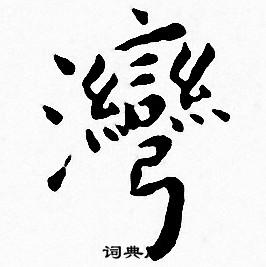 灣
词典